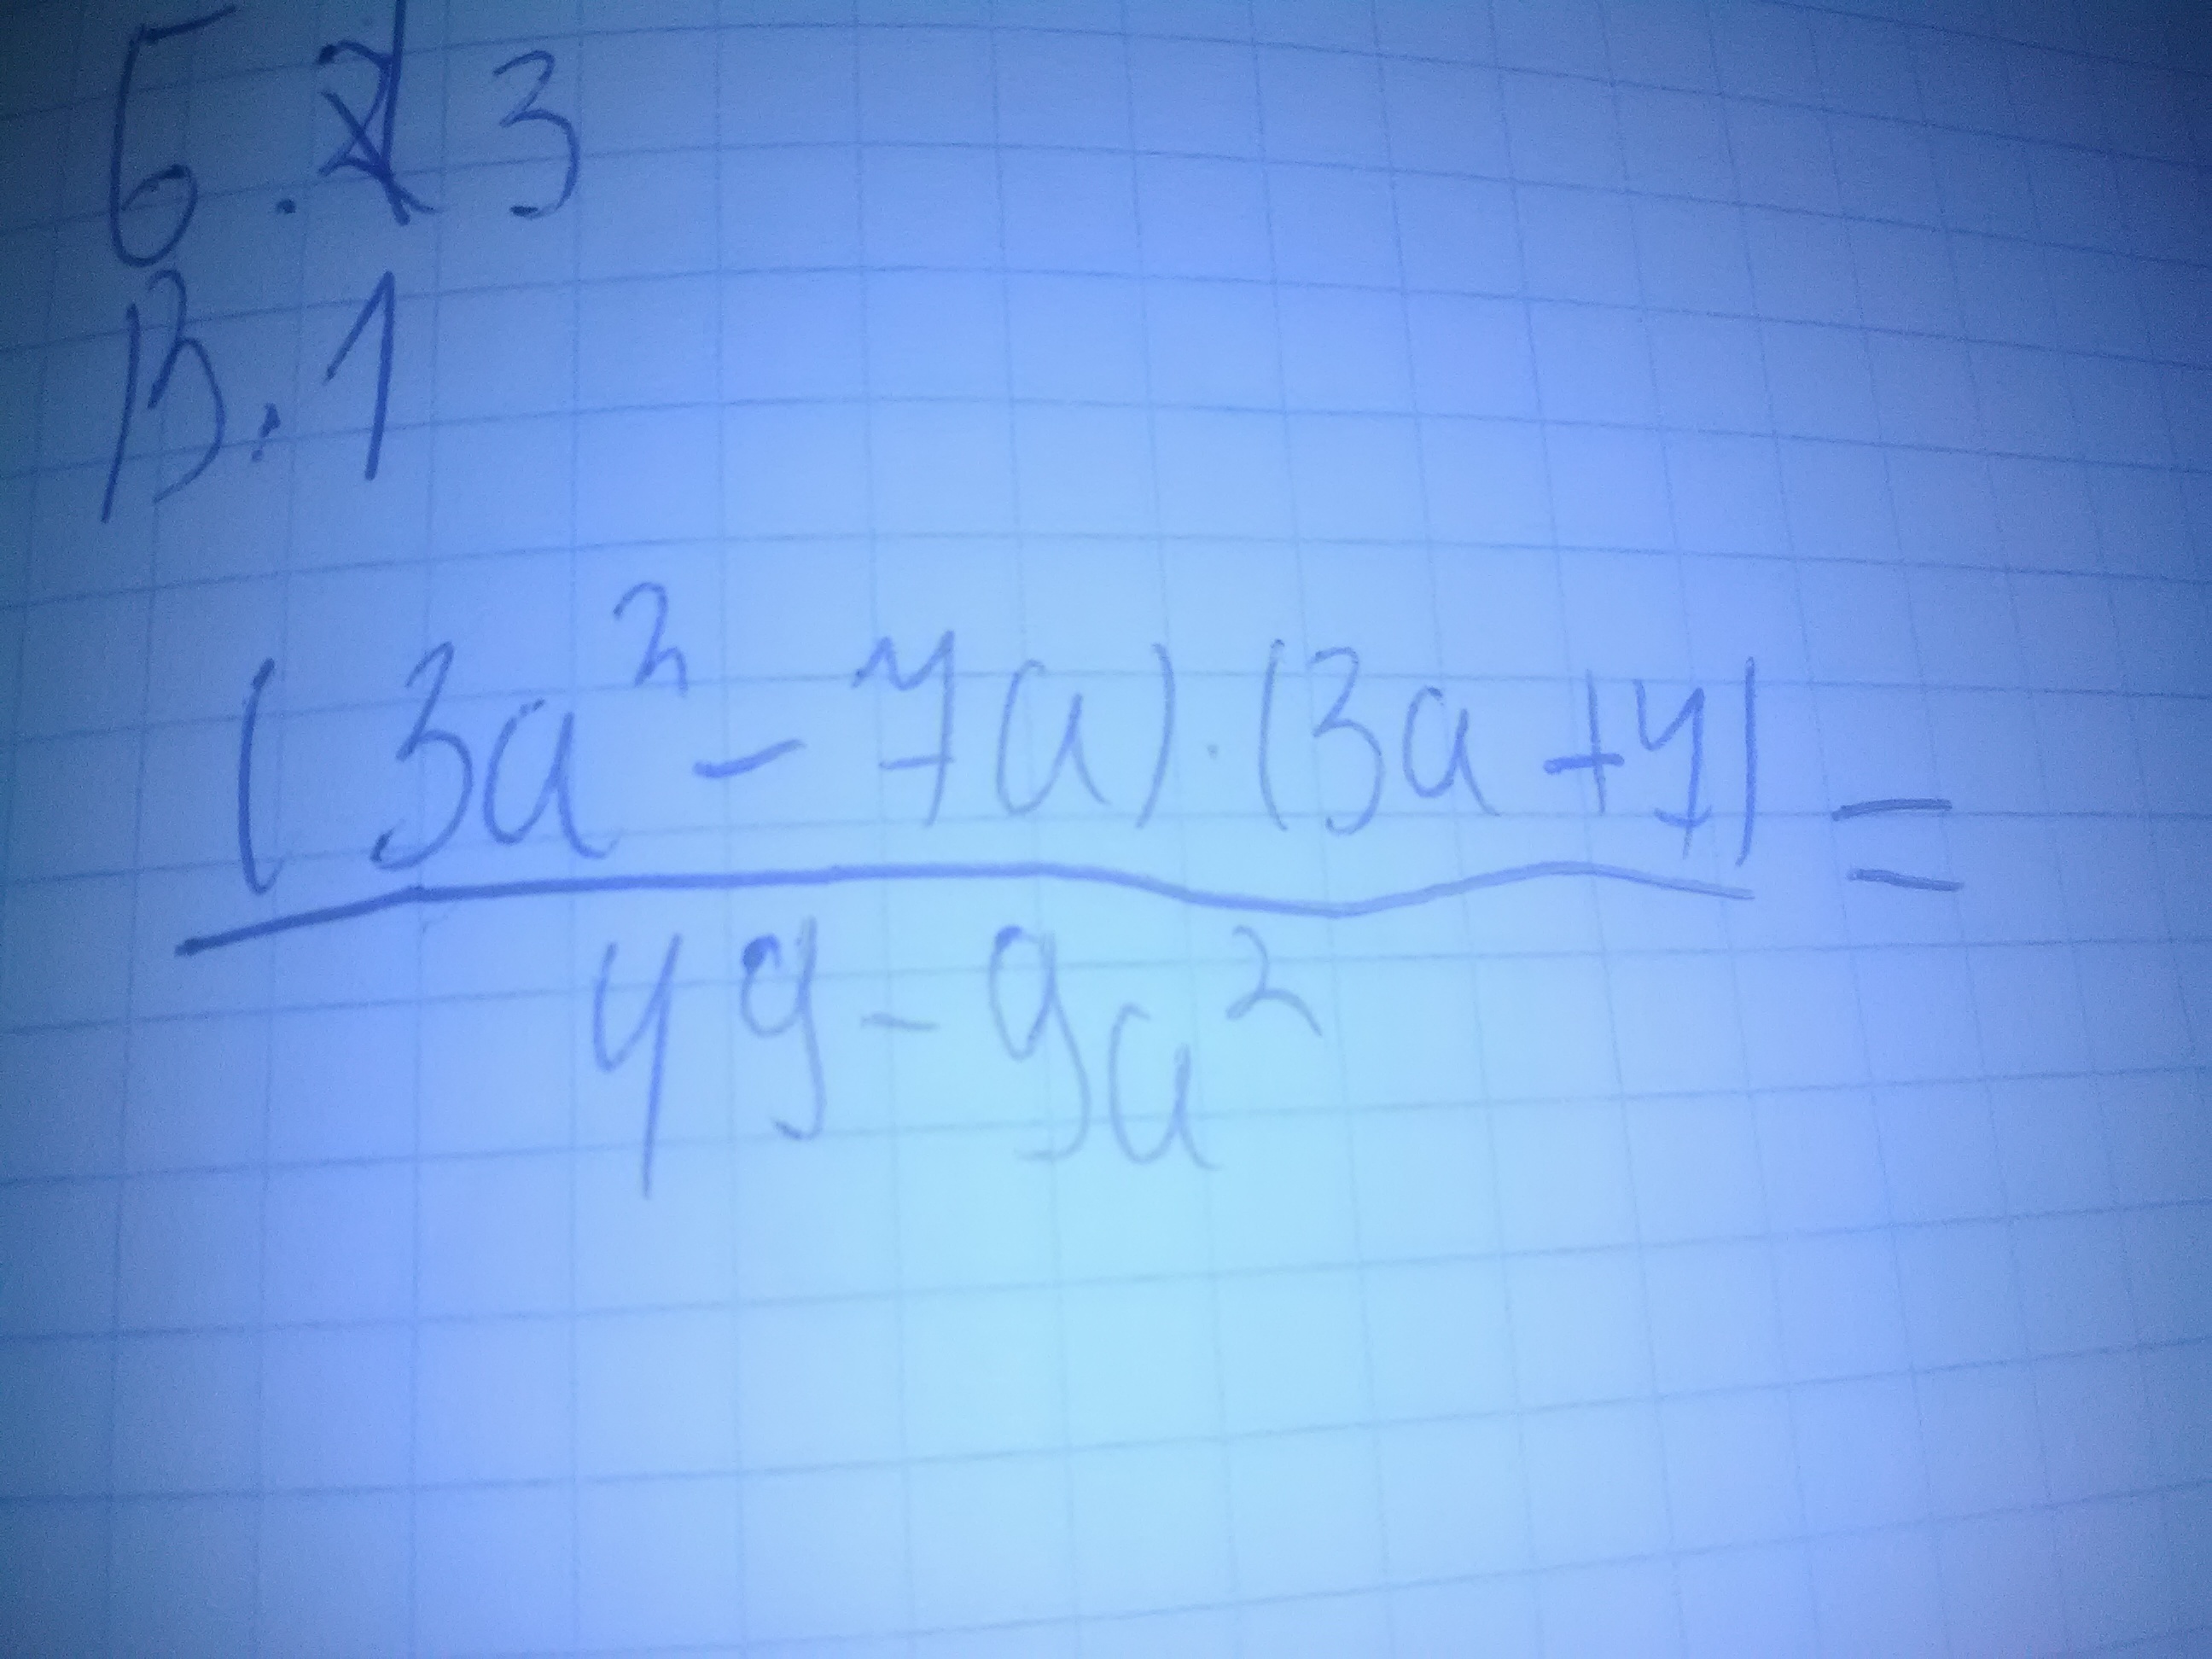 Б. 3
В. 1
(3a² - 7a) · (3a + 7) =
49 - 9a²